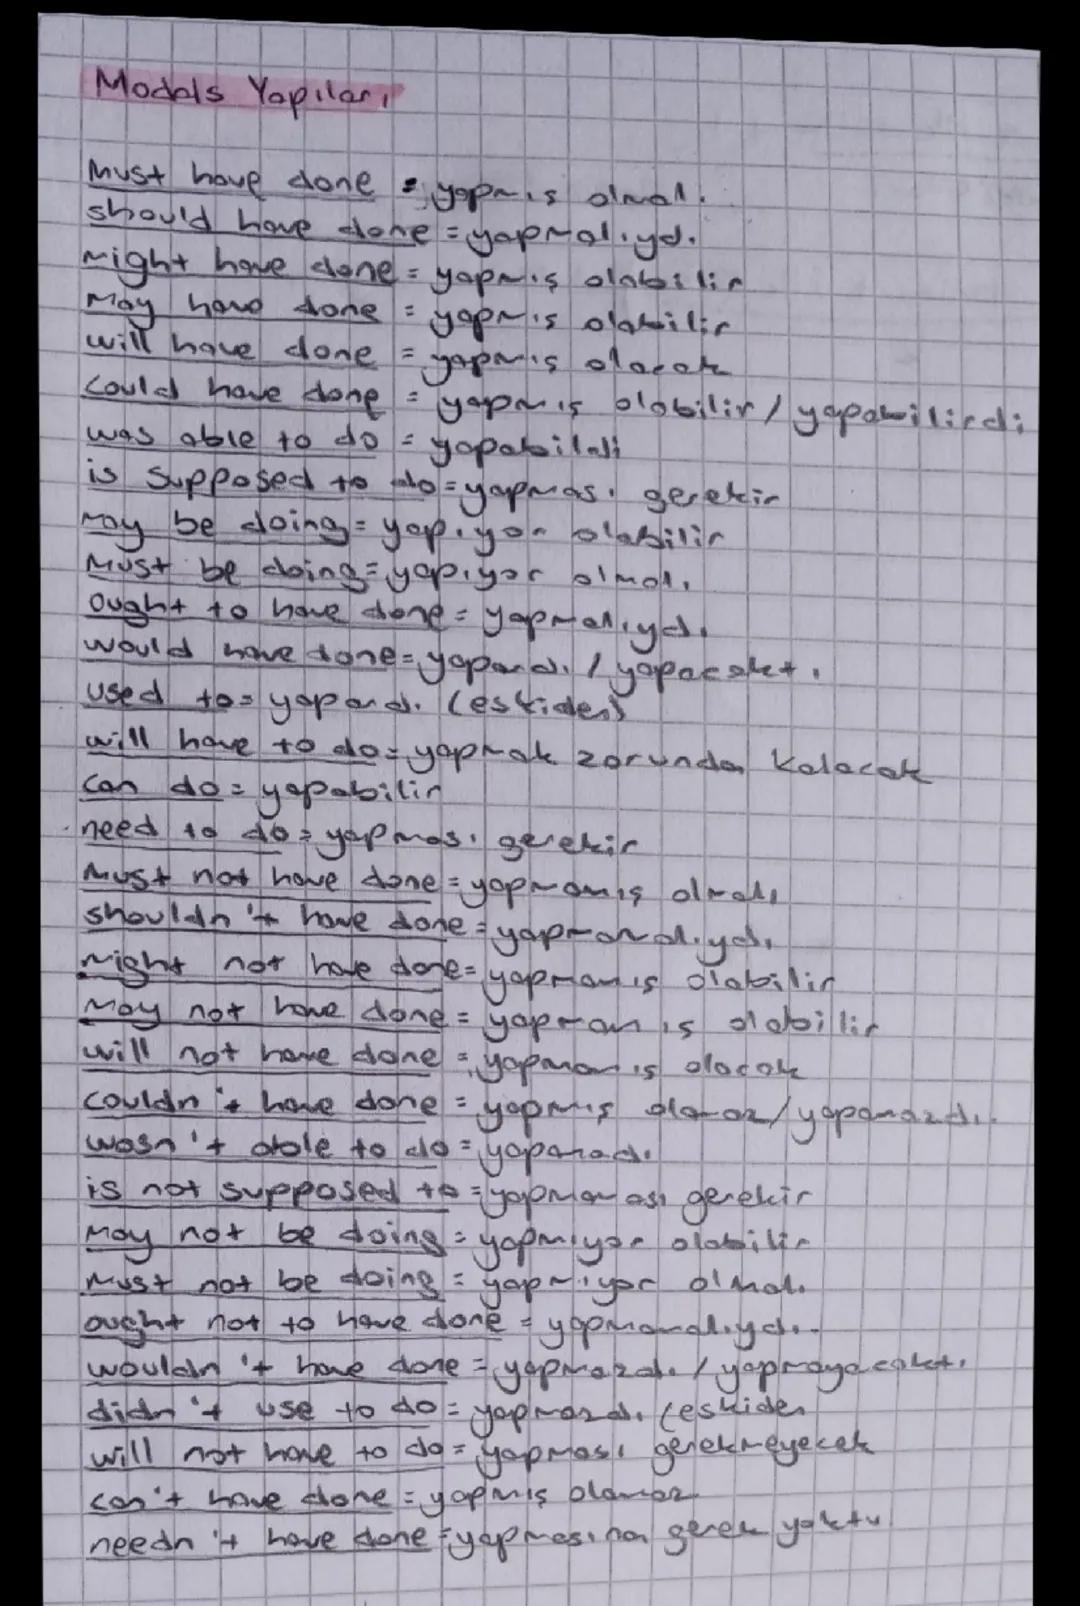 Modals Yapıları
Must have done = yapmış olmalı
should have done = yapmalıydı
might have done = yapmış olabilir
May have done = yapmış olabilir
will have done = yapmış olacak
Could have done = yapmış olabilir / yapabilirdi
was able to do = yapabildi
is supposed to do = yapması gerekir
may be doing = yapıyor olabilir
Must be doing = yapıyor olmalı
Ought to have done = yapmalıydı
would have done = yapardı / yapacaktı
used to = yapardı (eskiden)
will have to do = yapmak zorunda kalacak
can do = yapabilir
need to do = yapması gerekir
Must not have done = yapmamış olmalı
shouldn't have done = yapmamalıydı
might not have done = yapmamış olabilir
May not have done = yapmamış olabilir
will not have done = yapmamış olacak
couldn't have done = yapmış olamaz / yapamazdı
wasn't able to do = yapamadı
is not supposed to = yapmaması gerekir
May not be doing = yapmıyor olabilir
Must not be doing = yapmıyor olmalı
ought not to have done = yapmamalıydı
wouldn't have done = yapmazdı / yapmayacaktı
didn't use to do = yapmazdı (eskiden
will not have to do = yapması gerekmeyecek
can't have done = yapmış olamaz
needn't have done = yapmasına gerek yoktu